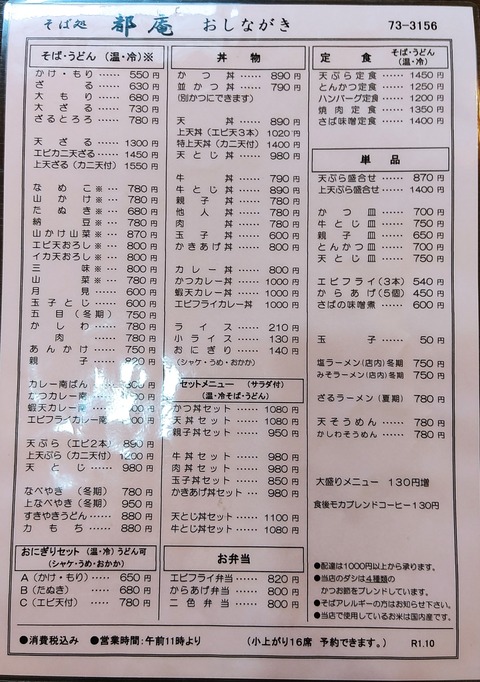 そば処 都庵 おしながき 73-3156
そば・うどん (温・冷)※
かけ・もり …… 550円
ざる …… 630円
大もり …… 680円
大ざる …… 730円
ざるとろろ …… 780円
天ざる …… 1300円
エビカニ天ざる …… 1450円
上天ざる(カニ天付) 1550円
なめこ※ … 780円
山かけ※ … 780円
たぬき※ … 680円
納豆※ … 780円
山かけ山菜※ … 870円
エビ天おろし※ … 800円
イカ天おろし※ … 800円
三味※ … 800円
山菜※ … 780円
月見 …… 600円
玉子とじ …… 600円
五目(冬期) 750円
かしわ …… 780円
肉 …… 780円
あんかけ …… 750円
親子 …… 820円
カレー南ばん
かつカレー南
蝦天カレー南
エビフライカレー南
天ぷら(エビ2本) 890円
上天ぷら(カニ付) 1200円
天とじ …… 980円
なべやき(冬期) 780円
上なべやき(冬期) 950円
すきやきうどん …… 880円
力もち …… 880円
おにぎりセット (温・冷)うどん可
(シャケ・うめ・おかか)
A(かけ・もり) …… 650円
B(たぬき) …… 680円
C(エビ天付) …… 780円
丼物
かつ丼 …… 890円
並かつ丼 …… 790円
(別かつにできます)
天丼 …… 890円
上天丼(エビ天3本) 1020円
特上天丼(カニ天付) 1400円
天とじ丼 …… 980円
牛丼 …… 790円
牛とじ丼 …… 890円
親子丼 …… 780円
他人丼 …… 780円
肉丼 …… 780円
玉子丼 …… 600円
かきあげ丼 …… 800円
カレー丼 …… 800円
かつカレー丼 …… 1000円
蝦天カレー丼 …… 1000円
エビフライカレー丼 1000円
ライス …… 210円
小ライス …… 130円
おにぎり …… 140円
(シャケ・うめ・おかか)
セットメニュー (サラダ付)
(温・冷そば・うどん)
かつ丼セット …… 1080円
天丼セット …… 1080円
親子丼セット …… 950円
牛丼セット …… 980円
肉丼セット …… 980円
玉子丼セット …… 850円
かきあげ丼セット … 980円
天とじ丼セット …… 1100円
牛とじ丼セット …… 1080円
お弁当
エビフライ弁当 …… 820円
からあげ弁当 …… 800円
二色弁当 …… 800円
定食 そば・うどん (温・冷)
天ぷら定食 …… 1450円
とんかつ定食 …… 1250円
ハンバーグ定食 …… 1200円
焼肉定食 …… 1350円
さば味噌定食 …… 1400円
単品
天ぷら盛合せ …… 870円
上天ぷら盛合せ …… 1400円
かつ皿 …… 700円
牛とじ皿 …… 750円
親子皿 …… 650円
とんかつ皿 …… 700円
天とじ皿 …… 750円
エビフライ(3本) 540円
からあげ(5個) 450円
さばの味噌煮 …… 600円
玉子 …… 50円
塩ラーメン(店内)冬期 750円
みそラーメン(店内)冬期 750円
ざるラーメン(夏期) 780円
天そうめん …… 780円
かしわそうめん …… 780円
大盛りメニュー 130円増
食後モカブレンドコーヒー130円
●配達は1000円以上から承ります。
●当店のダシは4種類の
かつお節をブレンドしています。
●そばアレルギーの方はお知らせ下さい。
●当店で使用しているお米は国内産です。
●消費税込み ●営業時間:午前11時より (小上がり16席 予約できます。) R1.10